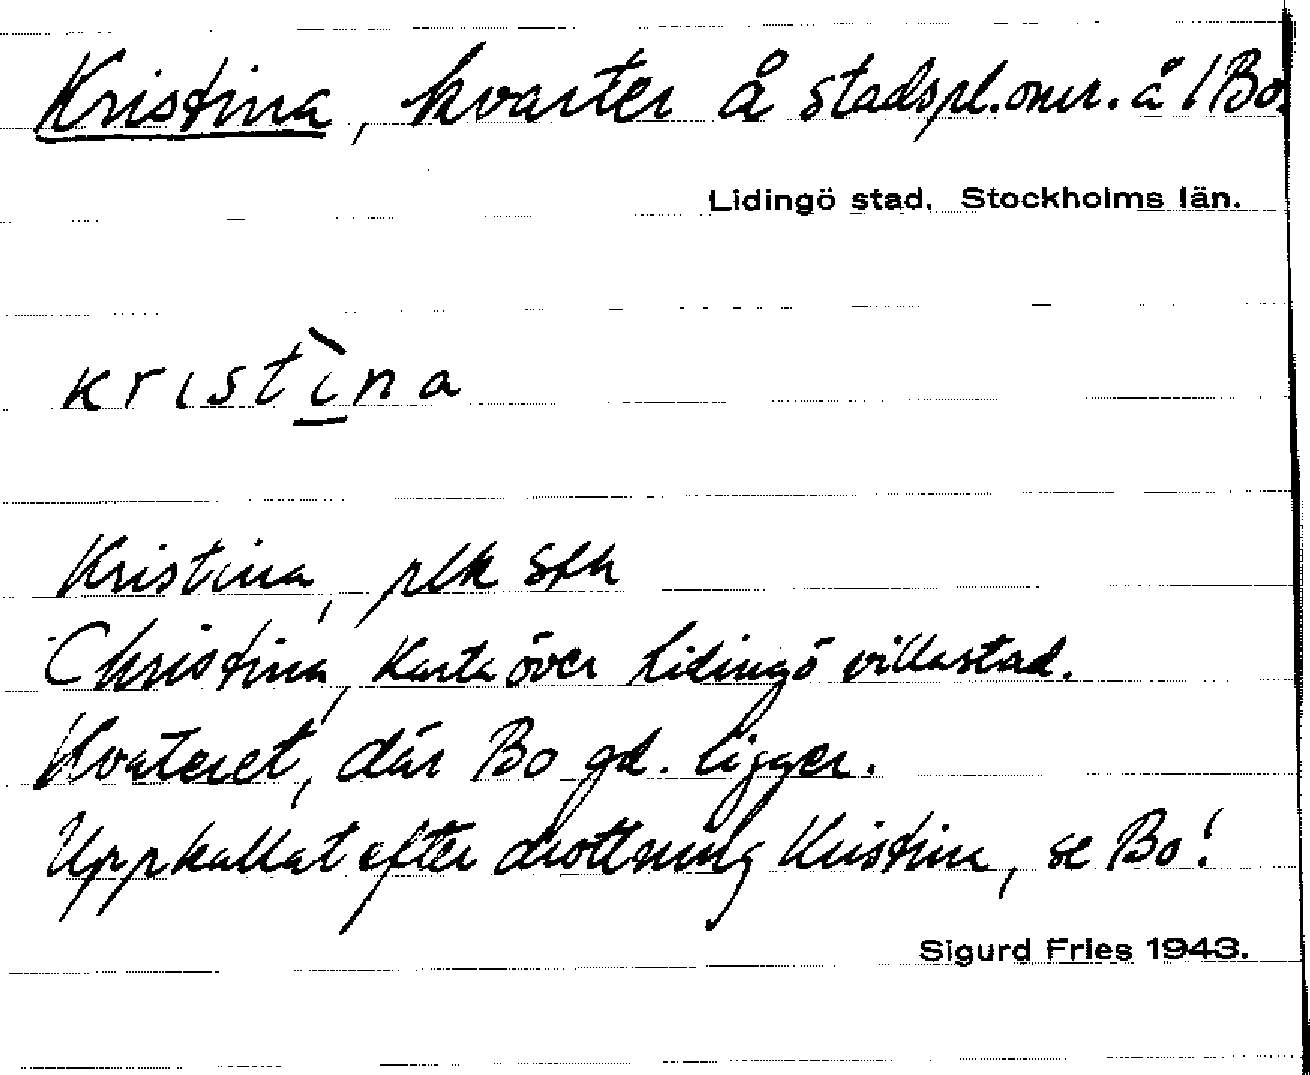 Kristina, kvarter å stadspl.omr. å 1 Bo.
Lidingö stad, Stockholms län.
kristìna
Kristina, plk Sth
Christina, Karta över Lidingö villastad.
Kvateret, där Bo gd. ligger.
Uppkallat efter drottning Kristina, se Bo!
Sigurd Fries 1943.